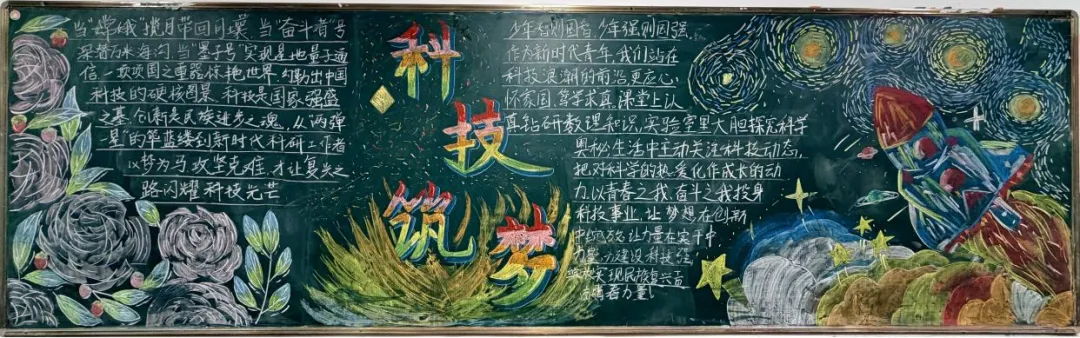 当"嫦娥"揽月带回月壤,当"奋斗者"号
探秘万米海沟,当"墨子号"实现星地量子通
信,一项项国之重器惊艳世界,勾勒出中国
科技的硬核图景,科技是国家强盛
之基,创新是民族进步之魂,从"两弹
一星"的筚路蓝缕到新时代科研工作者
以梦为马,攻坚克难,才让复兴之
路闪耀科技光芒
科
技
筑
梦
少年智则国智,少年强则国强,
作为新时代青年,我们站在
科技浪潮的前沿,更应心
怀家国,笃学求真,课堂上认
真钻研数理知识,实验室里大胆探究科学
奥秘,生活中主动关注科技动态,
把对科学的热爱化作成长的动
力,以青春之我,奋斗之我投身
科技事业,让梦想在创新
中,让力量在实干中
建设科技强
实现民族复兴贡
力量